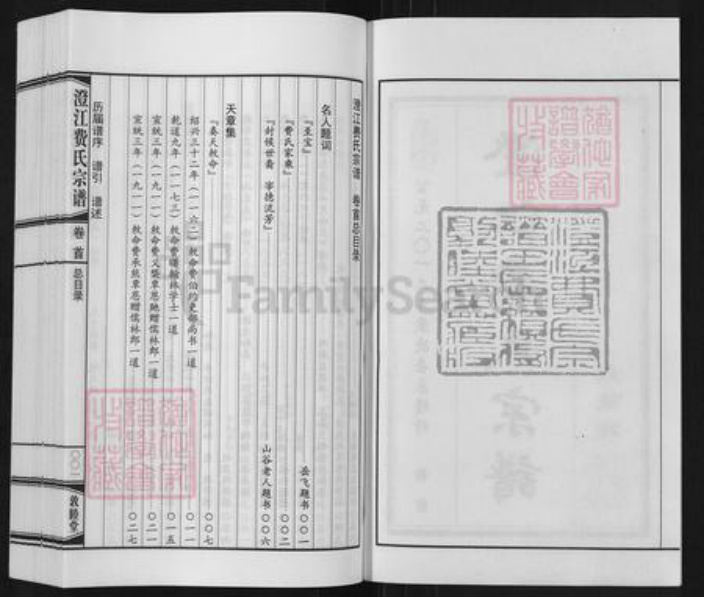 澄江费氏宗谱 卷首总目录
名人题词
『至宝』 岳飞题书 〇〇一
『费氏家乘』 〇〇二
『封候世裔 宰德流芳』 山谷老人题书 〇〇六
天章集
『奉天敕命』 〇〇七
绍兴三十二年（一一六二）敕命费伯约吏部尚书一道 〇一一
乾道九年（一一七三）敕命费 翰林学士一道 〇一五
宣统三年（一九一一）敕命费义 覃恩驰赠儒林郎一道 〇二一
宣统三年（一九一一）敕命费承熊覃恩赠儒林郎一道 〇二七
历届谱序 谱引 谱述
澄江费氏宗谱 卷首 总目录
〇〇一
敦睦堂
FamilySearch
宗谱